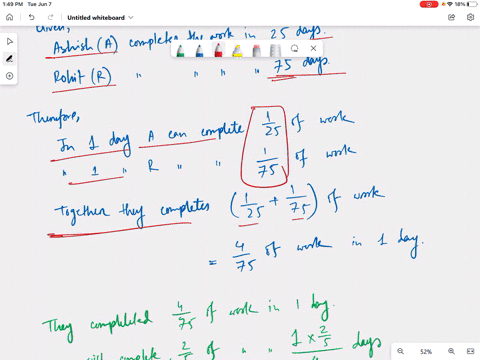 1:49 PM Tue Jun 7
18%
Untitled whiteboard
Given,
Ashish (A) completes the work in 25 days.
Rohit (R) " " " " 75 days.
Therefore,
In 1 day A can complete 1/25 of work
" 1 " R " " 1/75 of work
Together they completes (1/25 + 1/75) of work
= 4/75 of work in 1 day.
They completed 4/75 of work in 1 day.
will complete 2/5 of " " 1 × 2/5 days
52%